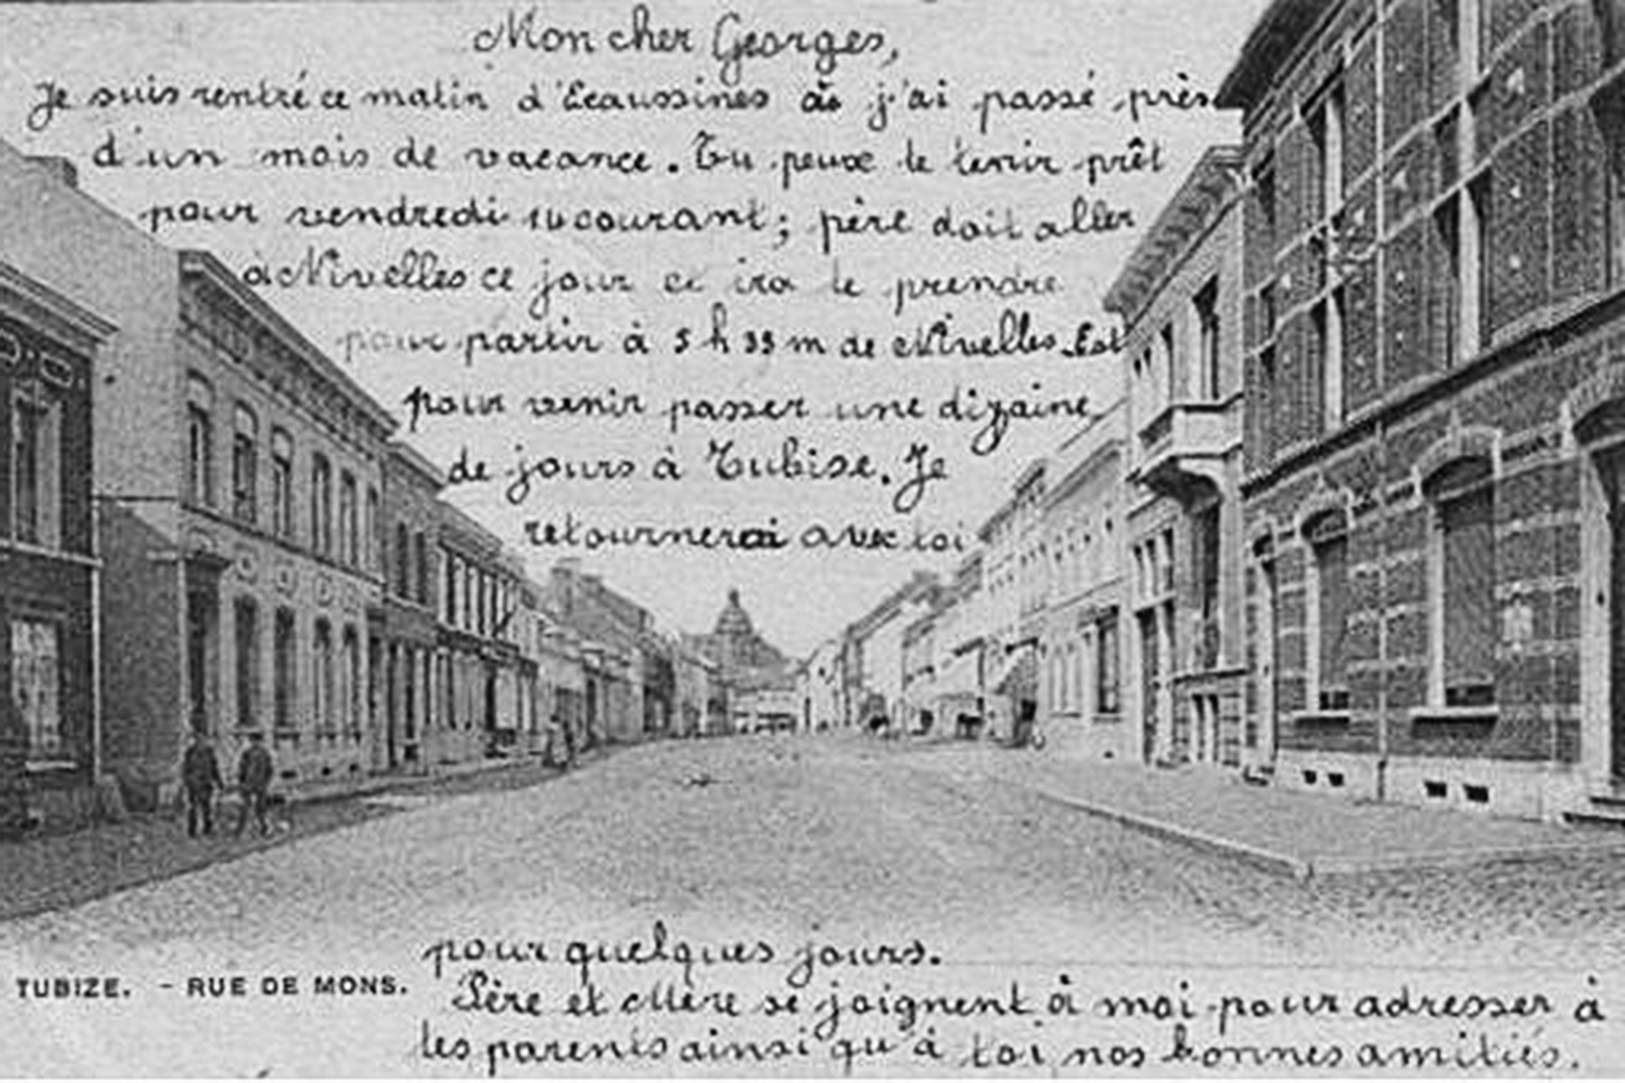 Mon cher Georges,
Je suis rentré ce matin d'Ecaussines où j'ai passé près
d'un mois de vacance. Tu peux te tenir prêt
pour vendredi courant; père doit aller
à Nivelles ce jour et ira te prendre
pour partir à 5 h 33 m de Nivelles-Est
pour venir passer une dizaine
de jours à Tubise. Je
retournerai avec toi
pour quelques jours.
TUBIZE. - RUE DE MONS.
Père et Mère se joignent à moi pour adresser à
tes parents ainsi qu'à toi nos bonnes amitiés.